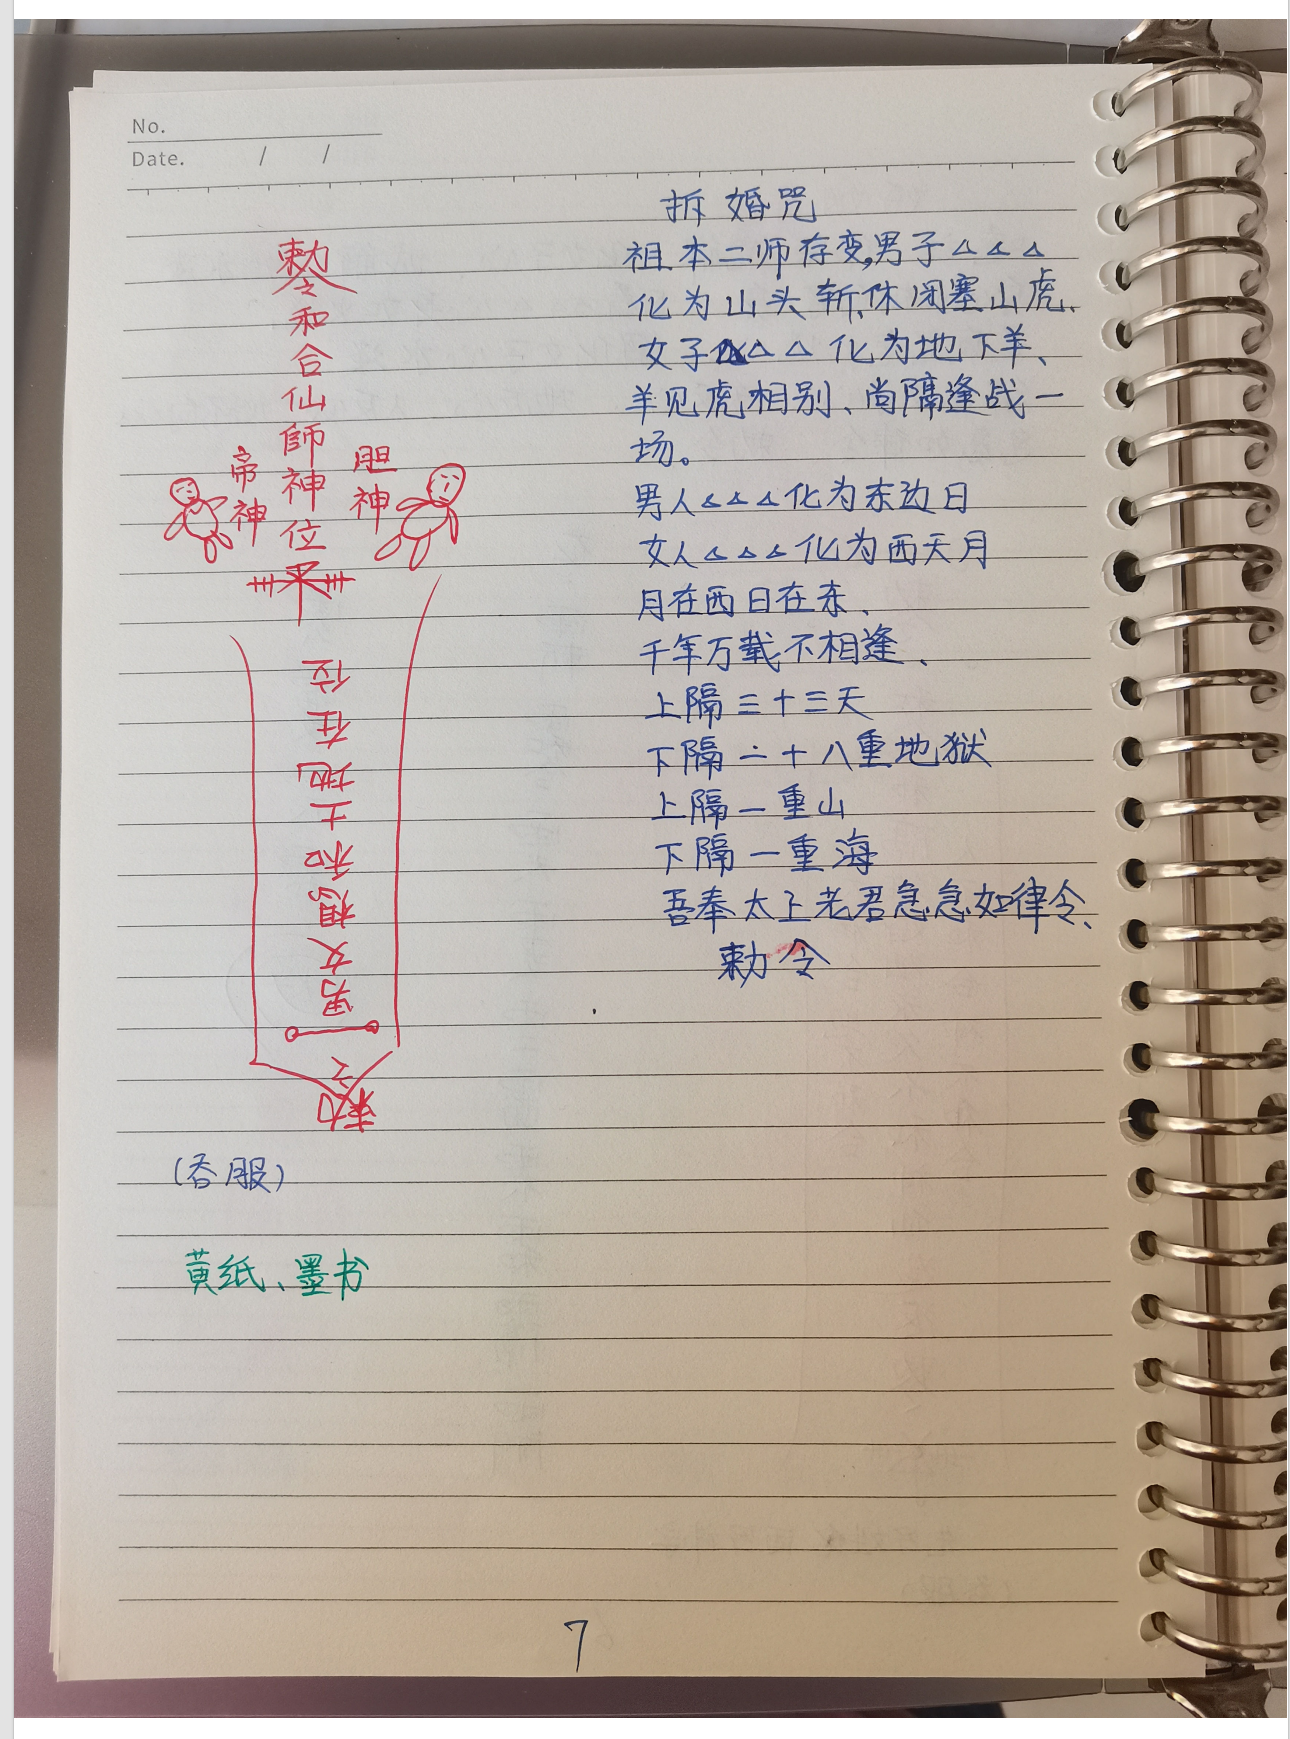 No.
Date. / /
拆婚咒
祖本二师存变,男子△△△
化为山头斩,休闭塞山虎、
女子△△ 化为地下羊、
羊见虎相别、尚隔逢战一
场。
男人△△△化为东边日
女人△△△化为西天月
月在西日在东、
千年万载不相逢、
上隔三十三天
下隔二十八重地狱
上隔一重山
下隔一重海
吾奉太上老君急急如律令、
敕令
敕令和合仙師神位
帝神
胆神
敕令
男女想和土地在位
(吞服)
黄纸、墨书
7